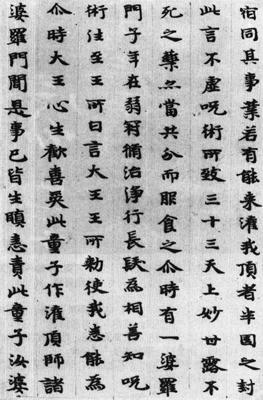 宿同其事業若有能来灌我頂者半國之封
此言不虛呪術所致三十三天上妙甘露不
死之藥亦當共分而服食之尒時有一婆羅
門子年在弱冠脩治淨行長髮為相善知呪
術往至王所白言大王王所勅使我悉能為
尒時大王心生歡喜受此童子作灌頂師諸
婆羅門聞是事已皆生瞋恚責此童子汝婆